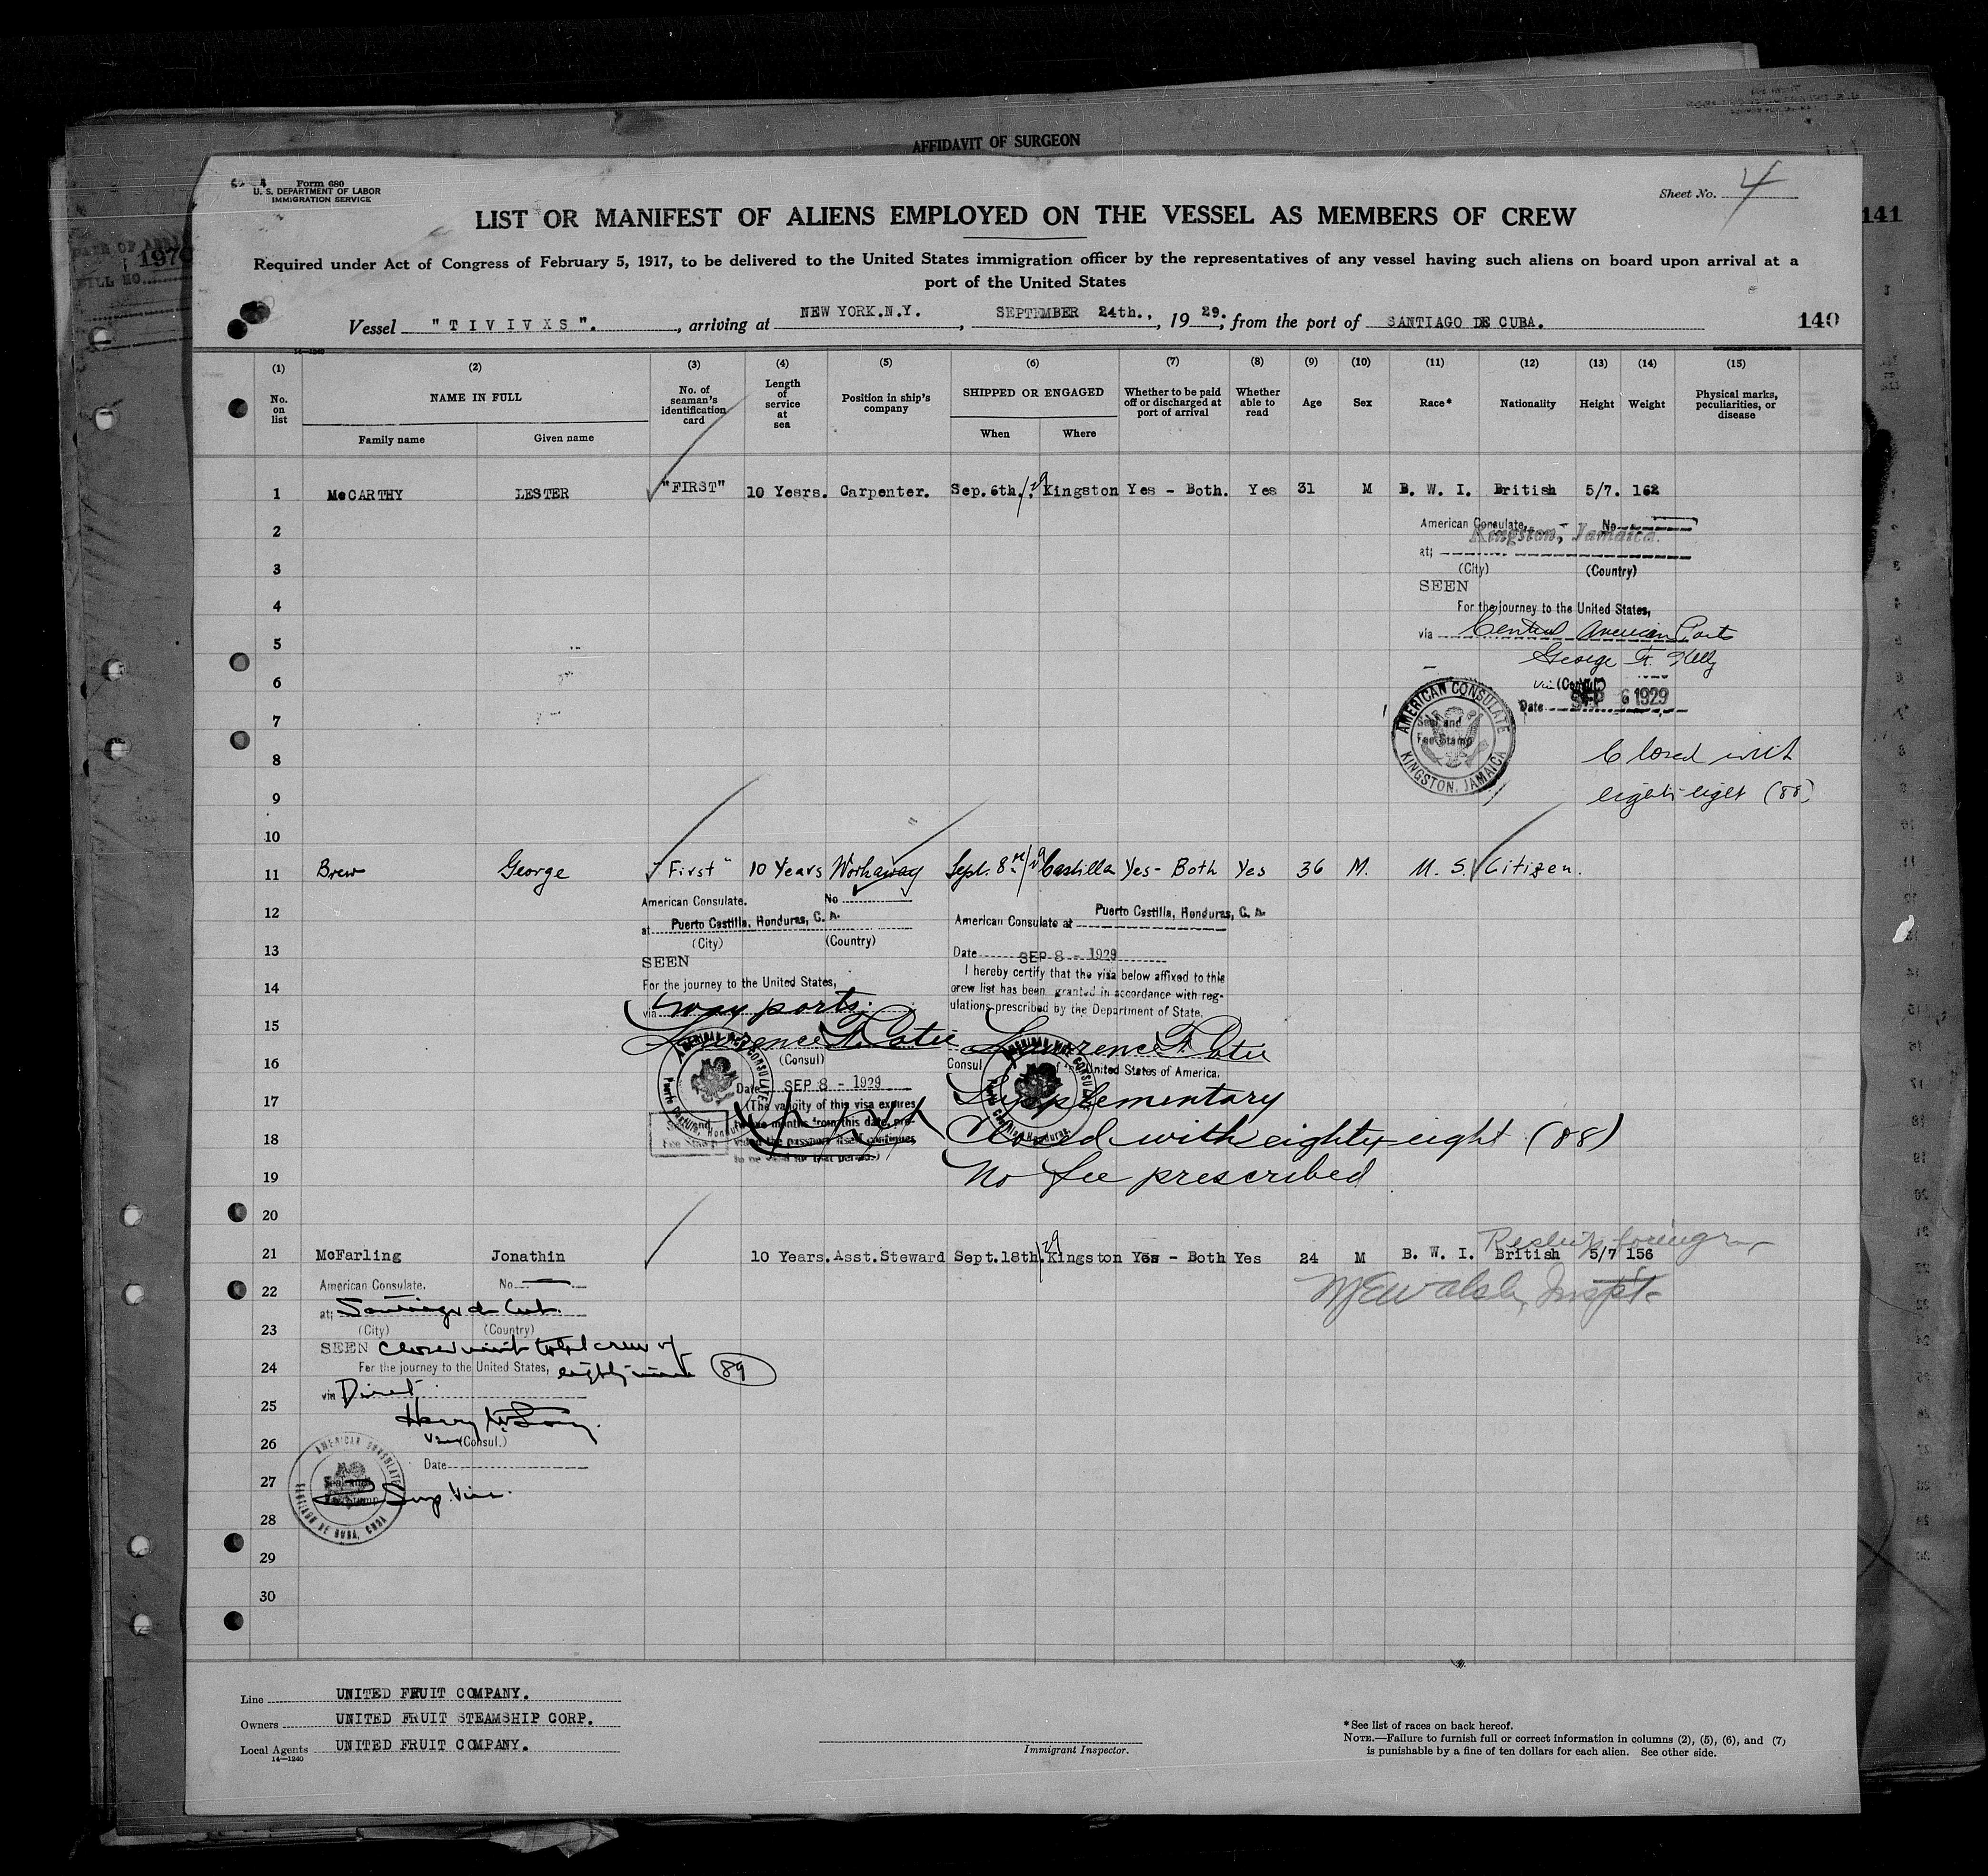 AFFIDAVIT OF SURGEON
Form 680
U. S. DEPARTMENT OF LABOR
IMMIGRATION SERVICE
Sheet No. 4
LIST OR MANIFEST OF ALIENS EMPLOYED ON THE VESSEL AS MEMBERS OF CREW
141
Required under Act of Congress of February 5, 1917, to be delivered to the United States immigration officer by the representatives of any vessel having such aliens on board upon arrival at a
port of the United States
Vessel "TIVIVXS". , arriving at NEW YORK.N.Y. , SEPTEMBER 24th., , 19 29. , from the port of SANTIAGO DE CUBA.
140
14—1240
(1) (2) (3) (4) (5) (6) (7) (8) (9) (10) (11) (12) (13) (14) (15)
No. on list NAME IN FULL Family name Given name No. of seaman's identification card Length of service at sea Position in ship's company SHIPPED OR ENGAGED When Where Whether to be paid off or discharged at port of arrival Whether able to read Age Sex Race* Nationality Height Weight Physical marks, peculiarities, or disease
1 McCARTHY LESTER "FIRST" 10 Years. Carpenter. Sep.6th./29 Kingston Yes - Both. Yes 31 M B. W. I. British 5/7. 162
American Consulate, No
2
Kingston, Jamaica.
at;
3
(City) (Country)
SEEN
4
For the journey to the United States,
5
via Central American Ports
George F. Kelly
6
Vice (Consul)
Date SEP 6 1929
7
AMERICAN CONSULATE
KINGSTON, JAMAICA
Seal and
Fee Stamp
8
Closed with
9
eighty-eight (88)
10
11 Brew George "First" 10 Years Workaway Sept. 8th/29 Castilla Yes - Both Yes 36 M. U. S. Citizen.
American Consulate. No
12
at Puerto Castilla, Honduras, C. A.
(City) (Country)
American Consulate at Puerto Castilla, Honduras, C. A.
13
SEEN
Date SEP 8 - 1929
I hereby certify that the visa below affixed to this
14
For the journey to the United States,
crew list has been granted in accordance with reg-
via way ports.
ulations prescribed by the Department of State.
15
16
(Consul)
Consul of the United States of America.
Date SEP 8 - 1929
17
(The validity of this visa expires
twelve months from this date, pro-
vided the passport itself continues
to be valid for that period.)
Supplementary
18
Closed with eighty-eight (88)
19
No fee prescribed
20
21 McFarling Jonathin 10 Years. Asst.Steward Sept.18th/29 Kingston Yes - Both Yes 24 M B. W. I. British 5/7 156
American Consulate. No.
22
at; Santiago de Cuba
(City) (Country)
23
SEEN Closed with total crew of
24
For the journey to the United States, eighty nine (89)
via Direct
25
26
Vice (Consul.)
Date
27
AMERICAN CONSULATE
SANTIAGO DE CUBA, CUBA
28
29
30
Line UNITED FRUIT COMPANY.
Owners UNITED FRUIT STEAMSHIP CORP.
Local Agents UNITED FRUIT COMPANY.
14—1240
Immigrant Inspector.
*See list of races on back hereof.
NOTE.—Failure to furnish full or correct information in columns (2), (5), (6), and (7)
is punishable by a fine of ten dollars for each alien. See other side.